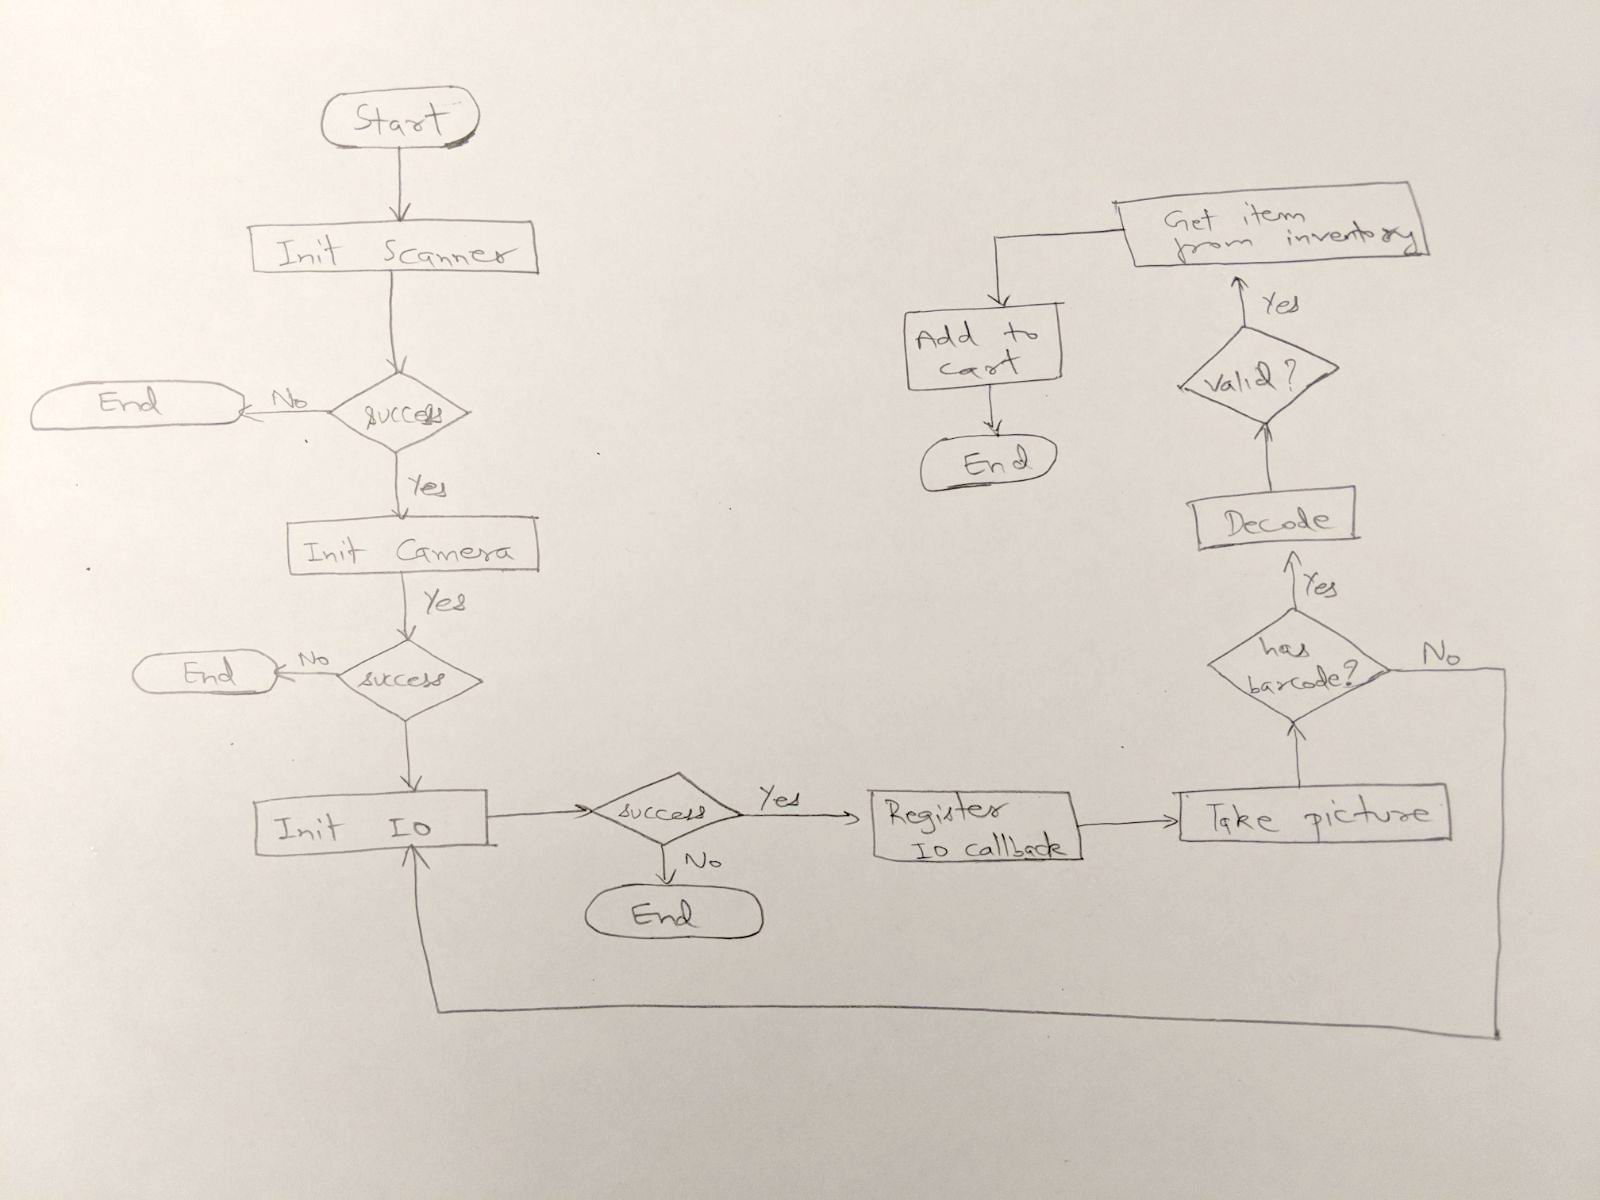 Start
Init Scanner
success
No
End
Yes
Init Camera
Yes
success
No
End
Init IO
success
No
End
Yes
Register
IO callback
Take picture
has
barcode?
No
Yes
Decode
Valid?
Yes
Get item
from inventory
Add to
cart
End